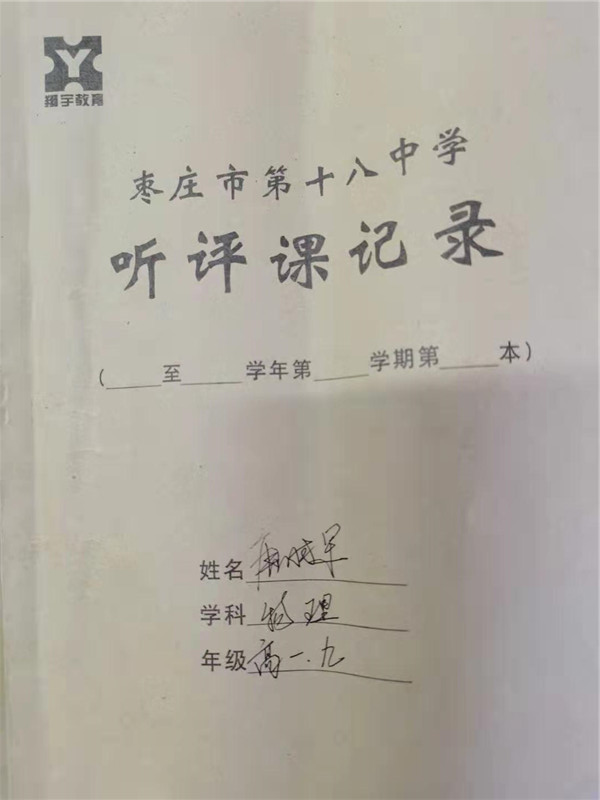 翔宇教育
枣庄市第十八中学
听评课记录
(____至____学年第____学期第____本)
姓名
学科 物理
年级 高一.九